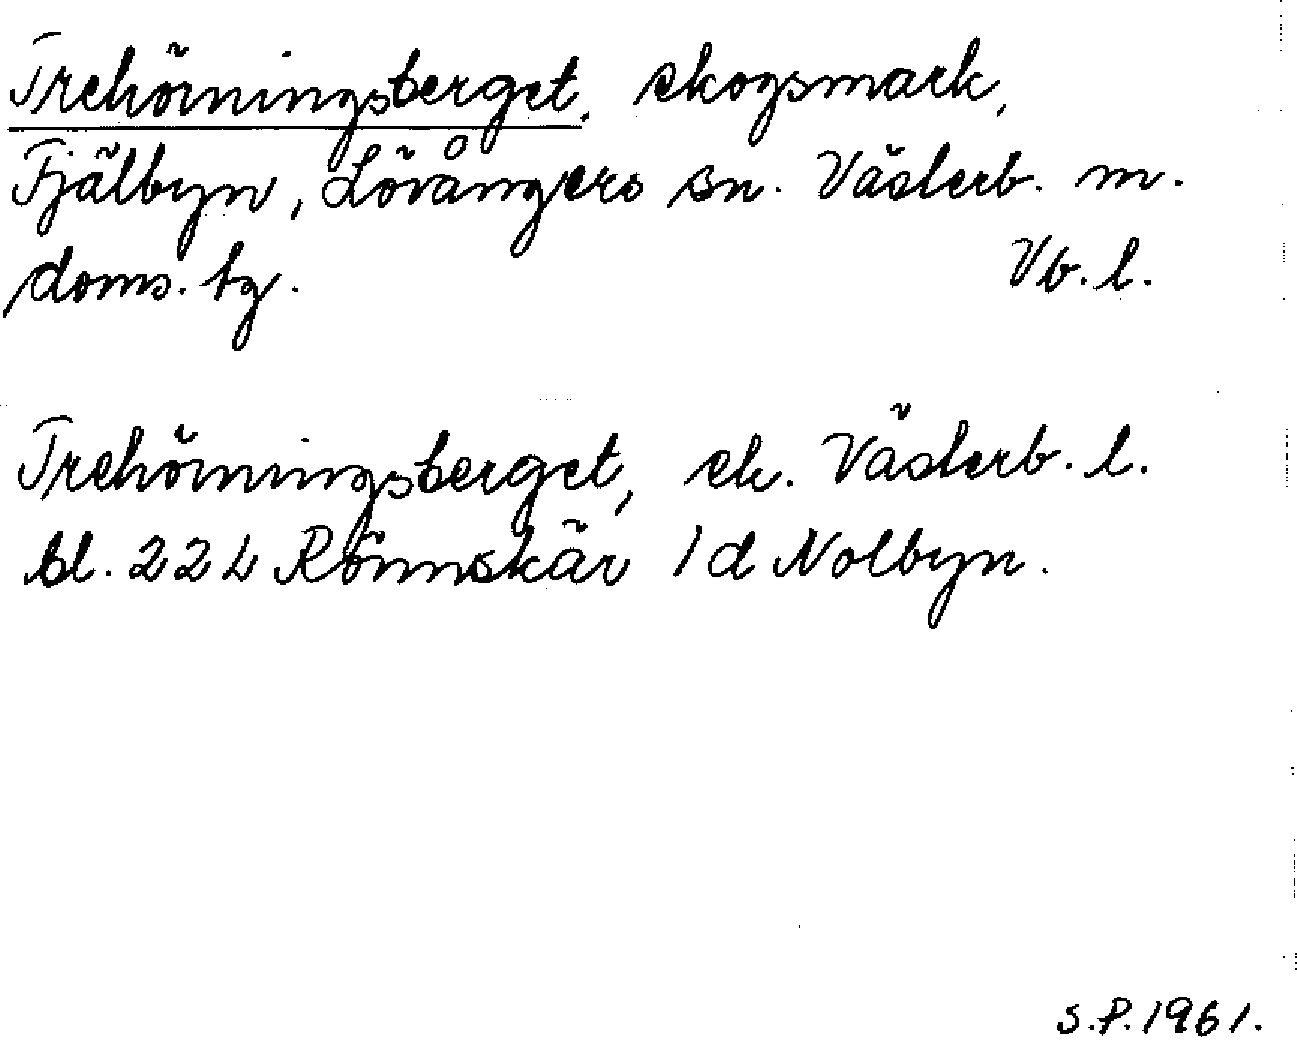 Trehörningsberget, skogsmark,
Fjälbyn, Lövångers sn. Västerb. m.
doms. tg. Vb. l.
Trehörningsberget, ek. Västerb. l.
bl. 22 L Rönnskär 1 d Nolbyn.
S.P. 1961.